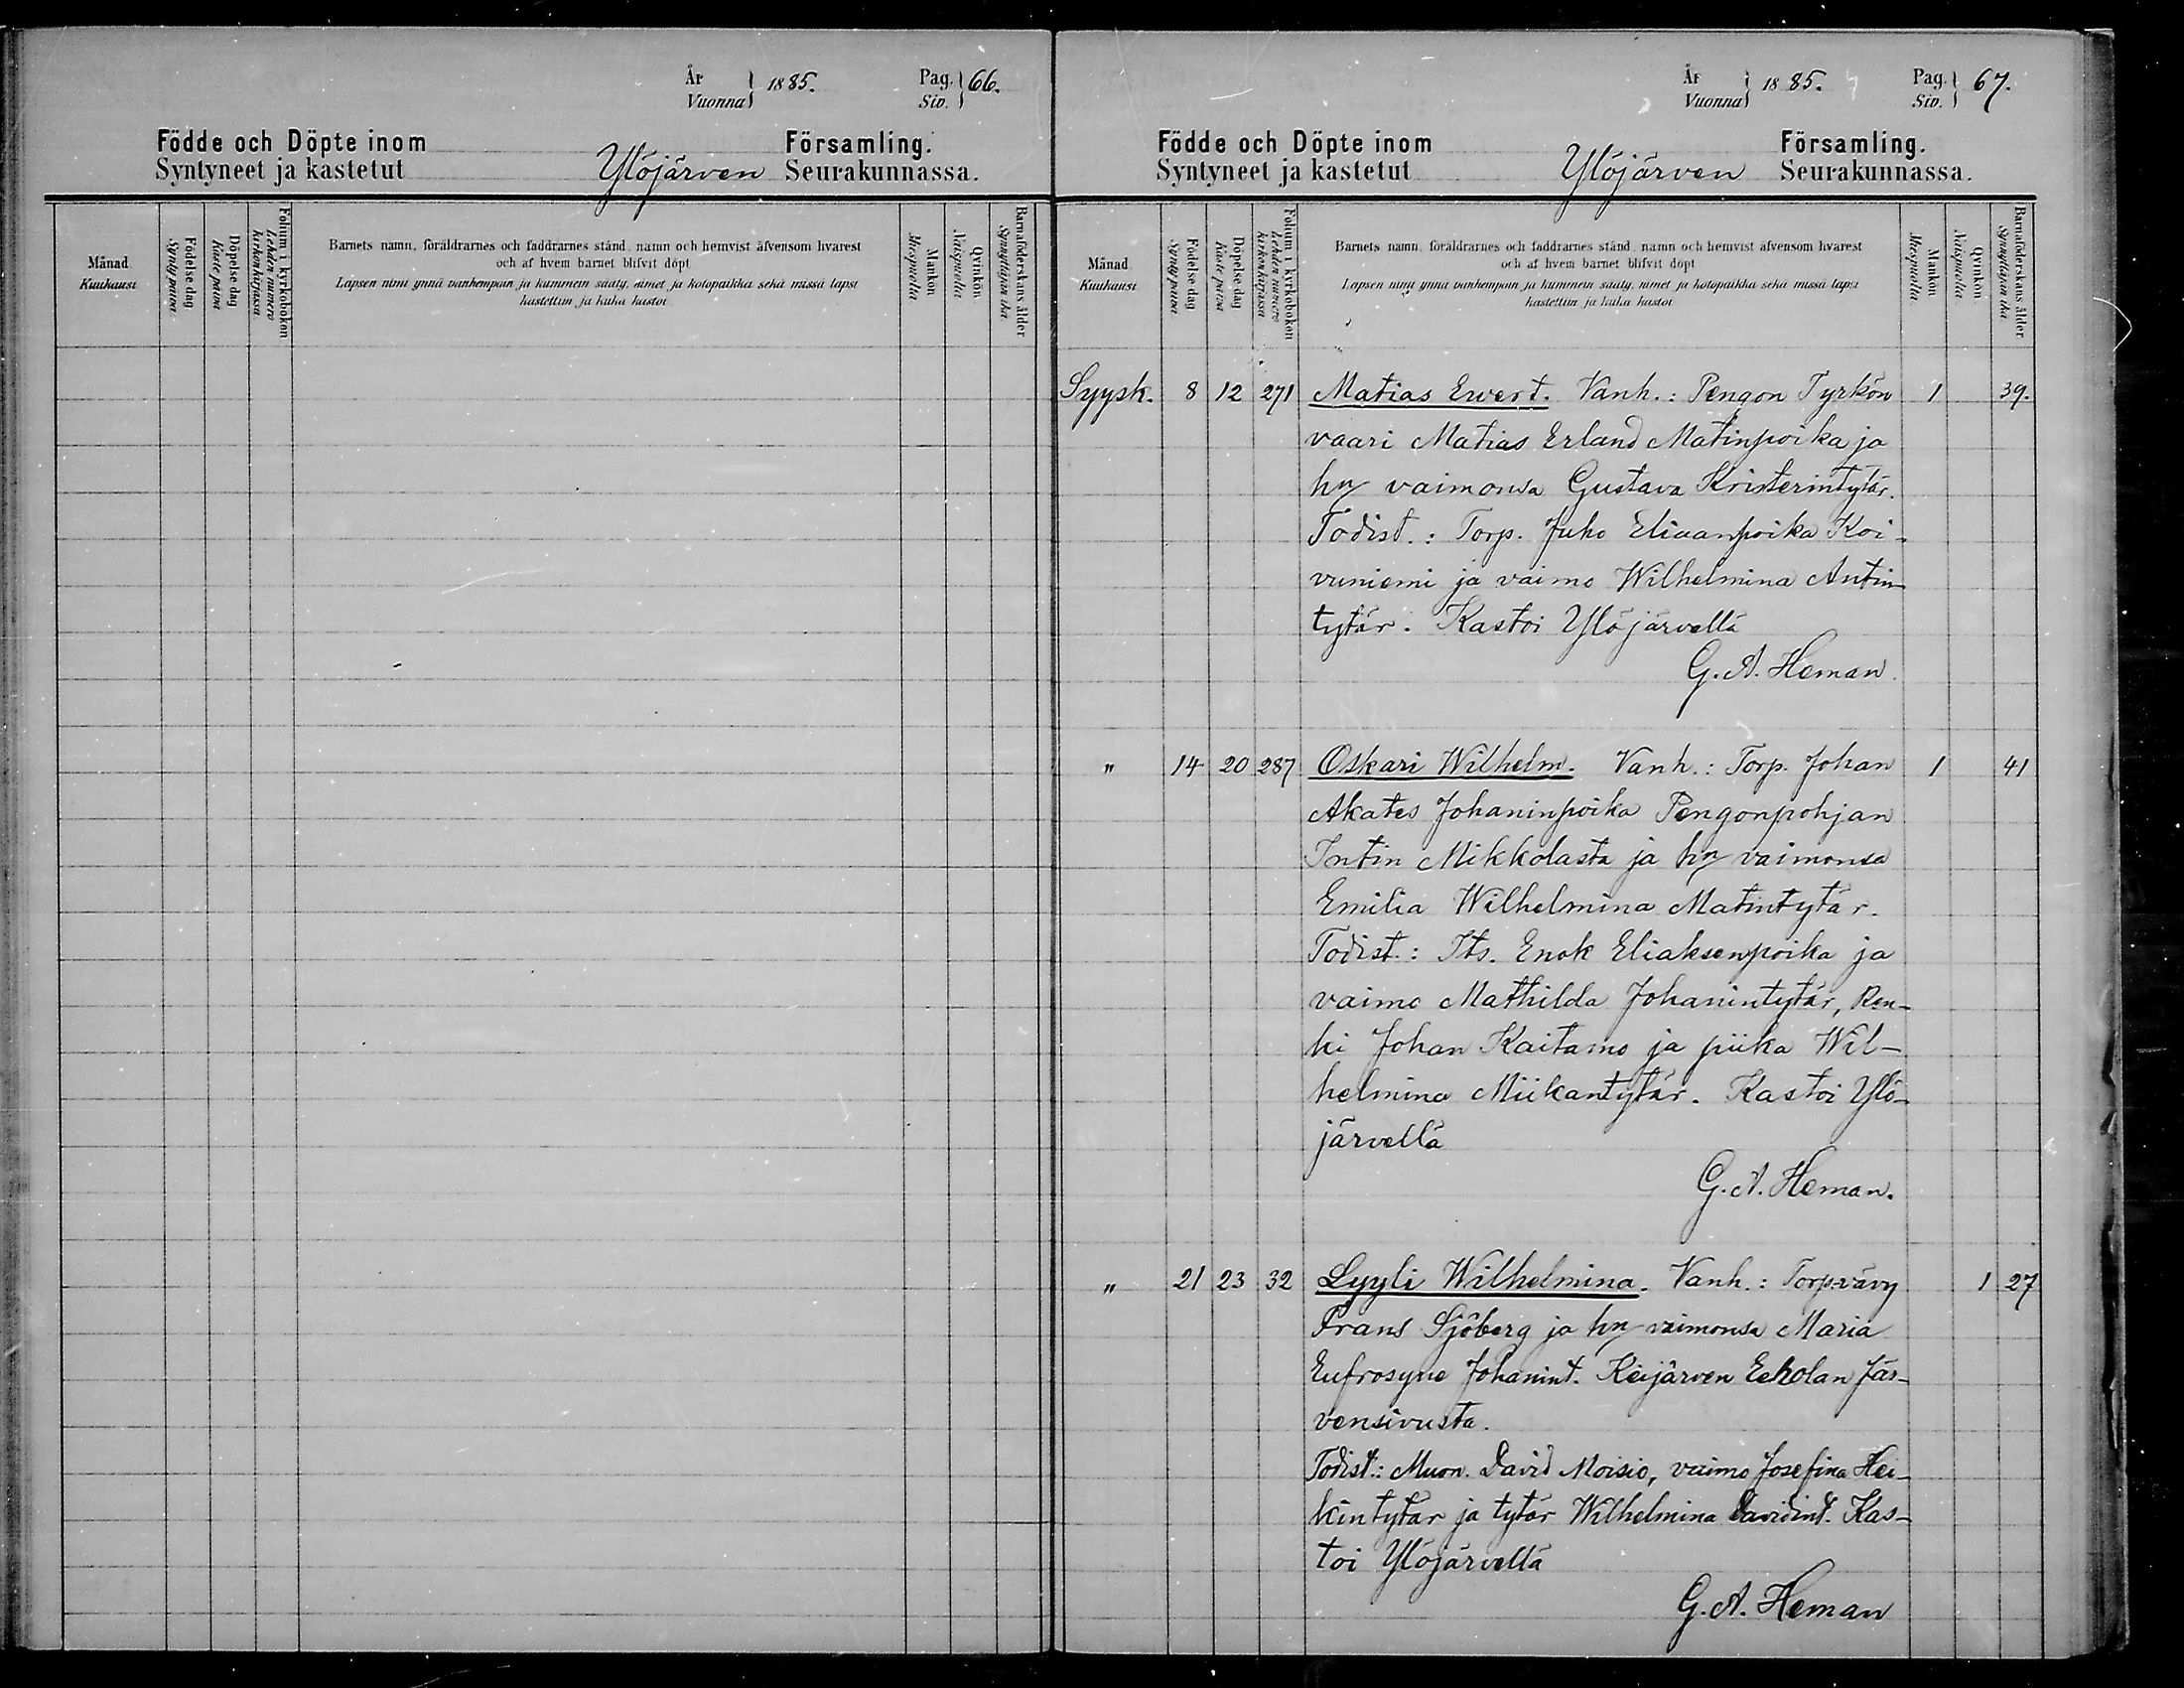 År
Vuonna } 1885. Pag.
Siv. } 66.
Födde och Döpte inom Församling.
Syntyneet ja kastetut Ylöjärven Seurakunnassa.
Månad
Kuukausi
Födelse dag
Synty päivä
Döpelse dag
Kaste päivä
Folium i kyrkoboken
Lehden numero
kirkonkirjassa
Barnets namn, föräldrarnes och faddrarnes stånd, namn och hemvist äfvensom hvarest
och af hvem barnet blifvit döpt
Lapsen nimi ynnä vanhempain ja kummein sääty, nimet ja kotopaikka sekä missä lapsi
kastettiin ja kuka kastoi
Mankön
Miespuolia
Qvinkön
Naispuolia
Barnaföderskans ålder
Synnyttäjän ikä
År
Vuonna } 1885. Pag.
Siv. } 67.
Födde och Döpte inom Församling.
Syntyneet ja kastetut Ylöjärven Seurakunnassa.
Månad
Kuukausi
Födelse dag
Synty päivä
Döpelse dag
Kaste päivä
Folium i kyrkoboken
Lehden numero
kirkonkirjassa
Barnets namn, föräldrarnes och faddrarnes stånd, namn och hemvist äfvensom hvarest
och af hvem barnet blifvit döpt
Lapsen nimi ynnä vanhempain ja kummein sääty, nimet ja kotopaikka sekä missä lapsi
kastettiin ja kuka kastoi
Mankön
Miespuolia
Qvinkön
Naispuolia
Barnaföderskans ålder
Synnyttäjän ikä
Syysk. 8 12 271 Matias Ewert. Vanh.: Pengon Tyrkön 1 39.
vaari Matias Erland Matinpoika ja
hn vaimonsa Gustava Kristerintytär.
Todist.: Torp. Juho Eliaanpoika Koi-
vuniemi ja vaimo Wilhelmina Antin-
tytär. Kastoi Ylöjärvellä
G. A. Heman
" 14 20 287 Oskari Wilhelm. Vanh.: Torp. Johan 1 41
Akates Johaninpoika Pengonpohjan
Intin Mikkolasta ja hn vaimonsa
Emilia Wilhelmina Matintytär.
Todist.: Its. Enok Eliaksenpoika ja
vaimo Mathilda Johanintytär, Ren-
ki Johan Kaitamo ja piika Wil-
helmina Miikantytär. Kastoi Ylö-
järvellä
G. A. Heman.
" 21 23 32 Lyyli Wilhelmina. Vanh.: Torp.vävy 1 27
Frans Sjöberg ja hn vaimonsa Maria
Eufrosyne Johanint. Keijärven Eerolan Jär-
vensivusta.
Todist.: Muon. David Moisio, vaimo Josefina Hei-
kintytär ja tytär Wilhelmina Davidint. Kas-
toi Ylöjärvellä
G. A. Heman